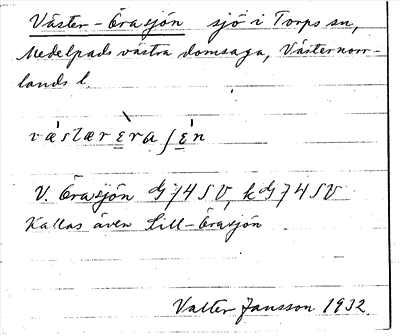 Väster-Örasjön sjö i Torps sn,
Medelpads västra domsaga, Västernorr-
lands l.
væ̀stær ɛ̀ra ʃɛ́n
V. Örasjön dj 74 SV, kdj 74 SV
Kallas även Lill-Örasjön
Valter Jansson 1932.